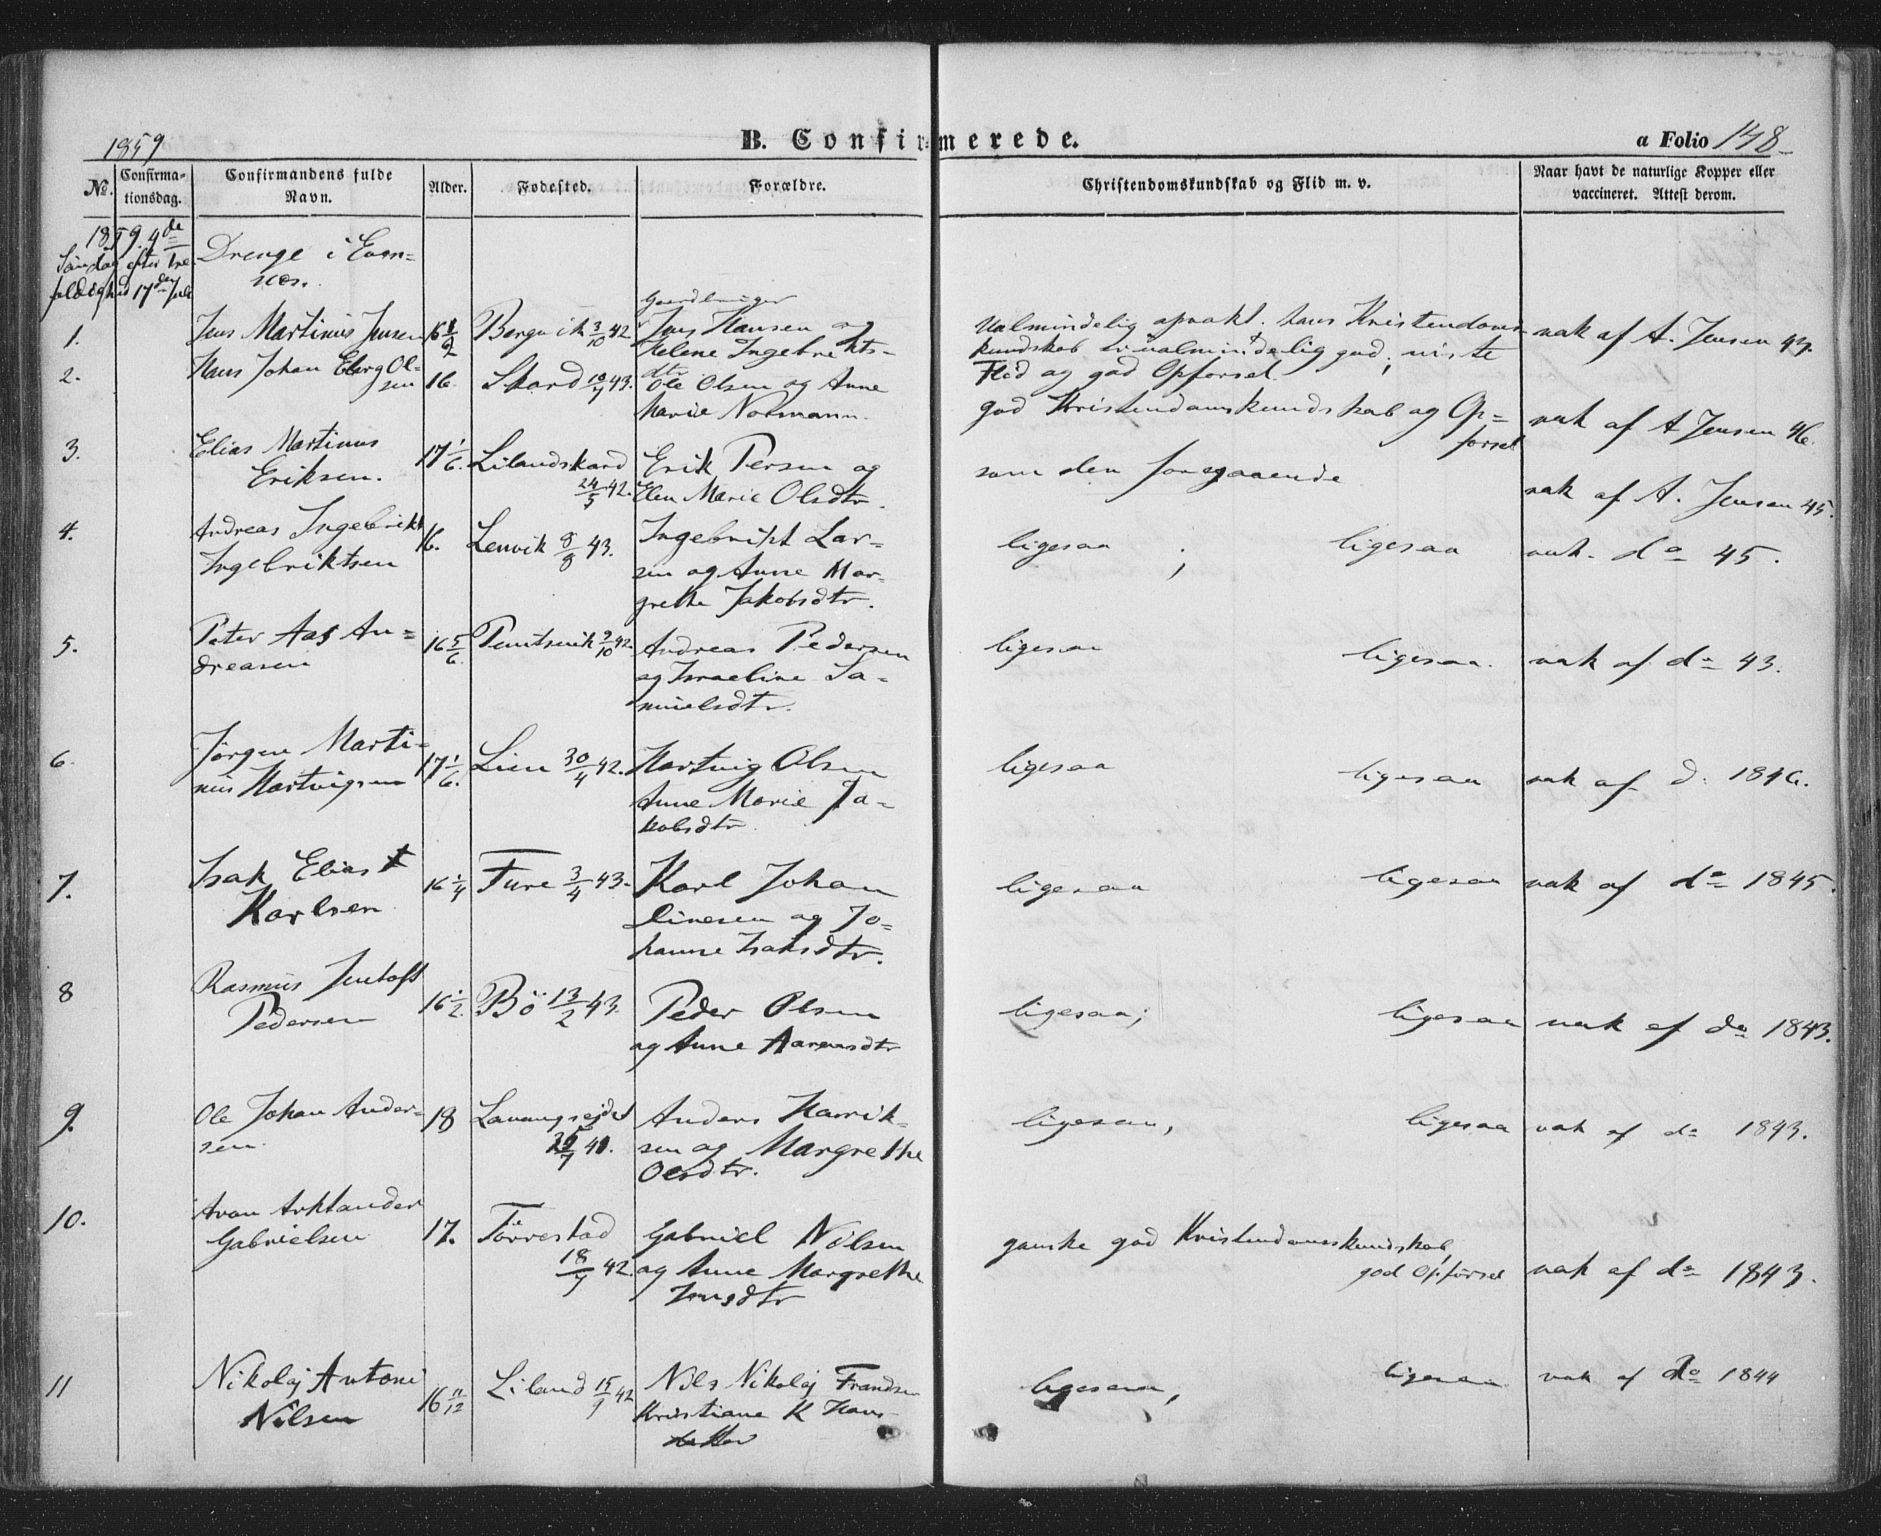 1859
B. Confirmerede.
a Folio 148
No. Confirmationsdag. Confirmandens fulde Navn. Alder. Fødested. Forældre. Christendomskundskab og Flid m. v. Naar havt de naturlige Kopper eller vaccineret. Attest derom.
1859. 4de
Søndag efter Tre
foldighed 17de Juli
Drenge i Even=
nes.
1. Jens Martinus Jensen 16 8/9 Bergvik 3/10 42. Gaardbruger
Jens Hansen og
Helene Ingebrikts-
dtr
Ualmindelig opvakt. hans Kristendoms-
kundskab er ualmindelig god;
Flid og god Opførsel.
vak af A. Jensen 43.
2. Hans Johan Eberg Ol-
sen 16. Skard 10/7 43. Ole Olsen og Anne
Marie Normann.
god Kristendomskundskab og Op=
førsel
vak af A Jensen 46.
3. Elias Martinus
Eriksen. 17 1/6. Lilandskard
24/5 42. Erik Persen og
Elen Marie Olsdtr.
som den foregaaende
vak af A. Jensen 45.
4. Andreas Ingebrikt
Ingebriktsen 16. Lenvik 8/8 43. Ingebrikt Lar=
sen og Anne Mar=
grethe Jakobsdtr.
ligesaa ; ligesaa vak. do 45.
5. Peter Aas An=
dreasen 16 5/6 2/10 42. Andreas Pedersen
og Israeline Sa=
muelsdtr.
ligesaa ligesaa. vak af do 43.
6. Jørgen Marti=
nus Hartvigsen 17 1/6. Lien 30/4 42. Hartvig Olsen
Anne Marie Ja-
kobsdtr.
ligesaa ligesaa vak af d. 1846.
7. Isak Elias
Karlsen 16 1/4 Ture 3/4 43. Karl Johan
Linesen og Jo=
hanne Isaksdtr.
ligesaa ligesaa vak af do 1845.
8 Rasmus Jentoft
Pedersen 16 1/2. Bö 13/2 43. Peder Olsen
og Anne
ligesaa; ligesaa vak af do 1843.
9. Ole Johan Ander=
sen. 18 Lavangsejdet
Anders Henrik-
sen og Margrethe
Olsdtr.
ligesaa, ligesaa vak af do 1843.
10. Aron Arktander
Gabrielsen 17. Törrestad
18/7 42. Gabriel Nilsen
og Anne Margrethe
Jensdtr
ganske god Kristendomskundskab,
god Opførsel
vak af do 1843.
11 Nikolaj Antoni
Nilsen 16 11/12 Liland 15/9 42 Nils Nikolaj Frandsen
Kristiane K Hans-
datter
ligesaa, ligesaa vak af do 1844